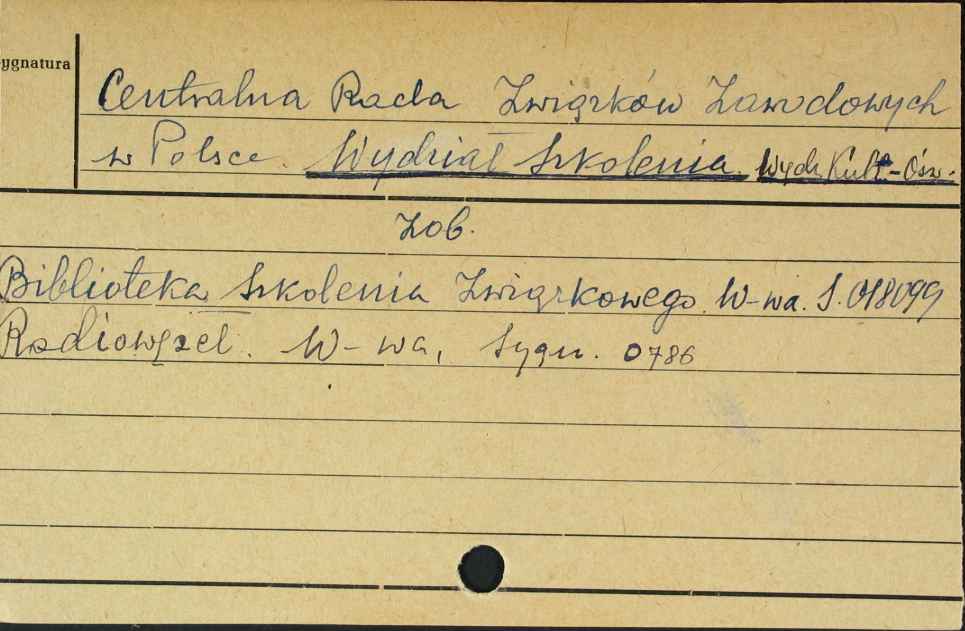 ygnatura
Centralna Rada Związków Zawodowych
w Polsce. Wydział Szkolenia. Wydz Kult-Ośw.
Zob.
Biblioteka Szkolenia Związkowego. W-wa. S. 018099
Radiowęzeł. W-wa, Sygn. 0786